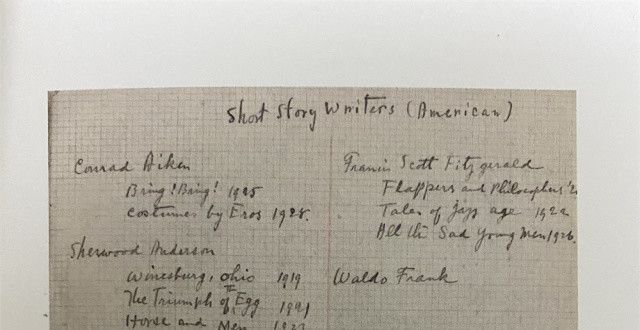 Short Story Writers (American)
Conrad Aiken
Bring! Bring! 1925
Costumes by Eros 1928.
Sherwood Anderson
Winesburg, Ohio 1919
The Triumph of Egg 1921
Horse and Men 1923
Francis Scott Fitzgerald
Flappers and Philosophers '2
Tales of Jazz age 1922
All the Sad Young Men 1926.
Waldo Frank